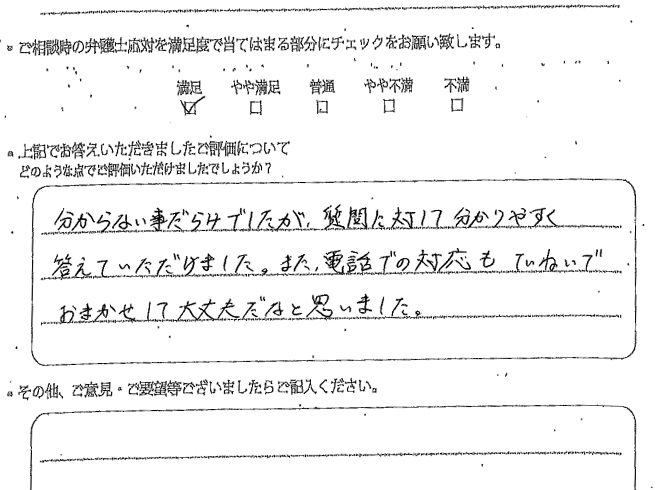 ご相談時の弁護士応対を満足度で当てはまる部分にチェックをお願い致します。
満足 やや満足 普通 やや不満 不満
上記でお答えいただきましたご評価について
どのような点でご評価いただけましたでしょうか？
分からない事だらけでしたが、質問に対して分かりやすく
答えていただけました。また、電話での対応もていねいで
おまかせして大丈夫だなと思いました。
その他、ご意見・ご要望等ございましたらご記入ください。